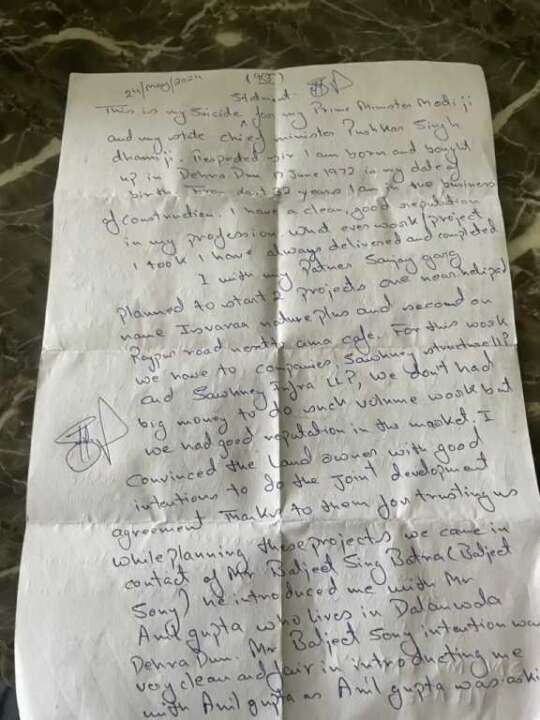 24/May/2024
Statment
This is my Suicide for my Prime Minister Modi ji
and my state chief minister Pushkar Singh
dhami ji. Respeded sir I am born and bought
up in Dehra Dun 7 June 1972 is my date of
birth From last 32 years I am in the business
of construction. I have a clean, good reputation
in my profession. What ever work/project
I took I have always delivered and completed
I with my Patner Sanjay garg
planned to start 2 projects one near helipad
name Isvaraa nature plus and second on
Rajpur road next ama cafe. For this work
we have to companies, Sawhney structure LLP
and Sawhney Infra LLP, we don't had
big money to do such volume work but
we had good reputation in the market I
Convinced the Land owner with good
intentions to do the Joint development
agreement Thanks to them for trusting us
while planning these projects we came in
contact of Mr Baljeet Sing Batra (Baljeet
Sony) he introduced me with Mr
Anil gupta who lives in Dalanwala
Dehra Dun. Mr Baljeet Sony intention was
very clean and fair in introducting me
with Anil gupta as Anil gupta was aski